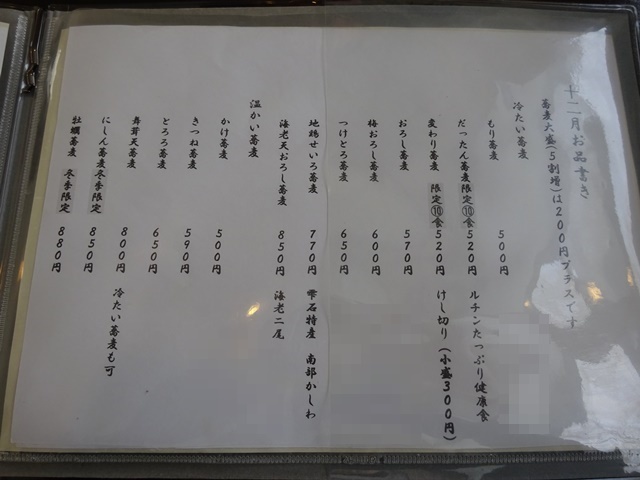 十二月お品書き
蕎麦大盛(5割増)は200円プラスです
冷たい蕎麦
もり蕎麦 500円
だったん蕎麦 限定⑩食 520円 ルチンたっぷり健康食
変わり蕎麦 限定⑩食 520円 けし切り(小盛300円)
おろし蕎麦 570円
梅おろし蕎麦 600円
つけとろ蕎麦 650円
地鶏せいろ蕎麦 770円 雫石特産 南部かしわ
海老天おろし蕎麦 850円 海老二尾
温かい蕎麦
かけ蕎麦 500円
きつね蕎麦 590円
とろろ蕎麦 650円
舞茸天蕎麦 800円 冷たい蕎麦も可
にしん蕎麦 冬季限定 850円
牡蠣蕎麦 冬季限定 880円